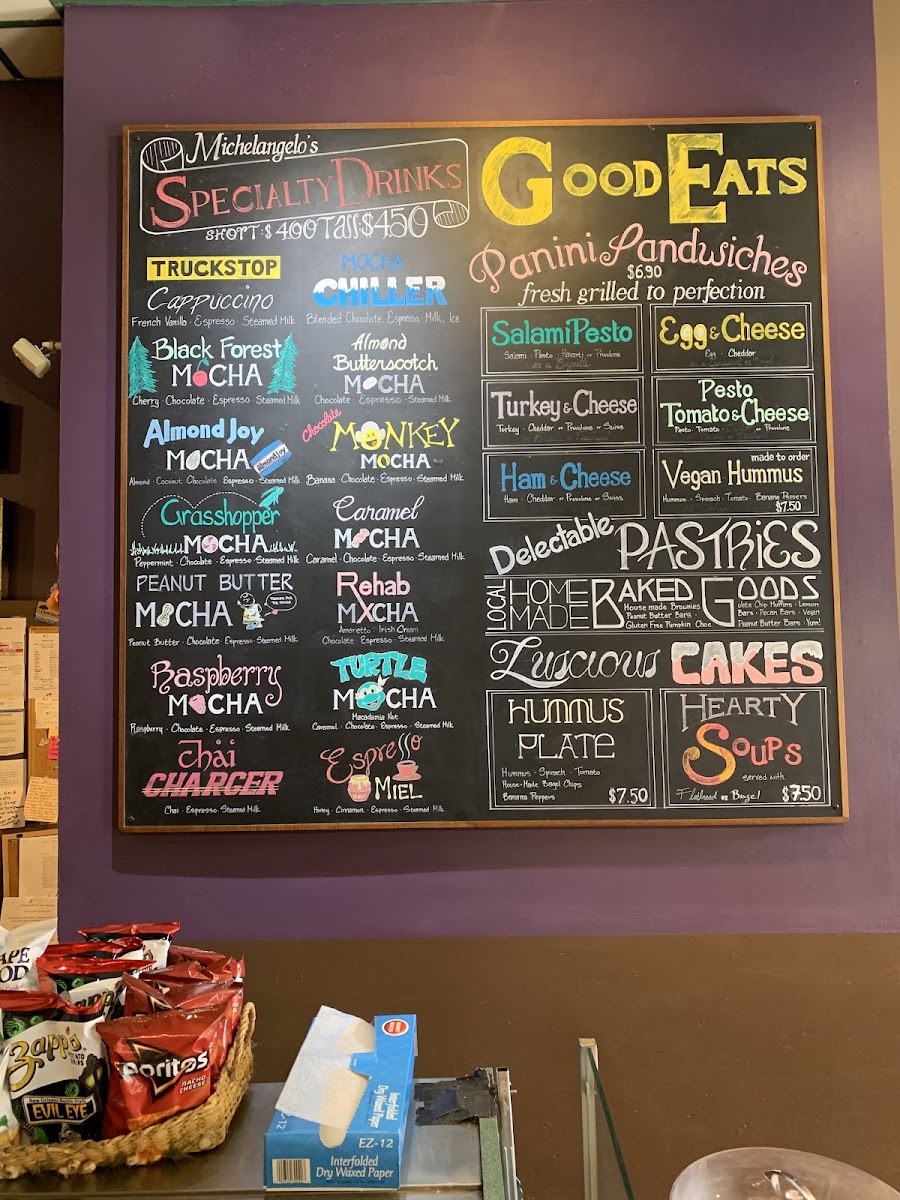 Michelangelo's
SPECIALTY DRINKS
SHORT: $4.00 Tall: $4.50
TRUCKSTOP
Cappuccino
French Vanilla · Espresso · Steamed Milk
MOCHA
CHILLER
Blended Chocolate, Espresso, Milk, Ice
Black Forest
MOCHA
Cherry · Chocolate · Espresso · Steamed Milk
Almond
Butterscotch
MOCHA
Chocolate · Espresso · Steamed Milk
Almond Joy
MOCHA
Almond Joy
Almond · Coconut · Chocolate · Espresso · Steamed Milk
Chocolate
MONKEY
MOCHA
Banana · Chocolate · Espresso · Steamed Milk
Grasshopper
MOCHA
Peppermint · Chocolate · Espresso · Steamed Milk
Caramel
MOCHA
Caramel · Chocolate · Espresso · Steamed Milk
PEANUT BUTTER
MOCHA
Peanut Butter · Chocolate · Espresso · Steamed Milk
Rehab
MXCHA
Amaretto · Irish Cream
Chocolate · Espresso · Steamed Milk
Raspberry
MOCHA
Raspberry · Chocolate · Espresso · Steamed Milk
TURTLE
MOCHA
Macadamia Nut
Caramel · Chocolate · Espresso · Steamed Milk
Chai
CHARGER
Chai · Espresso · Steamed Milk
Espresso
MIEL
Honey · Cinnamon · Espresso · Steamed Milk
GOOD EATS
Panini Sandwiches
$6.90
fresh grilled to perfection
Salami Pesto
Salami · Pesto · Havarti or Provolone
on a Baguette
Egg & Cheese
Egg · Cheddar
Turkey & Cheese
Turkey · Cheddar or Provolone or Swiss
Pesto
Tomato & Cheese
Pesto · Tomato · or Provolone
Ham & Cheese
Ham · Cheddar or Provolone or Swiss
made to order
Vegan Hummus
Hummus · Spinach · Tomato · Banana Peppers
$7.50
Delectable PASTRIES
LOCAL HOME MADE BAKED GOODS
House made Brownies
Peanut Butter Bars
Gluten Free Pumpkin Choc
olate Chip Muffins · Lemon
Bars · Pecan Bars · Vegan
Peanut Butter Bars · Yum!
Luscious CAKES
HUMMUS
PLATE
Hummus · Spinach · Tomato
House-Made Bagel Chips
Banana Peppers
$7.50
HEARTY
SOUPS
served with
Flatbread or Bagel $7.50
Zapp's
POTATO CHIPS
EVIL EYE
Doritos
NACHO CHEESE
Interfolded
Dry Waxed Paper
EZ-12
Interfolded
Dry Waxed Paper